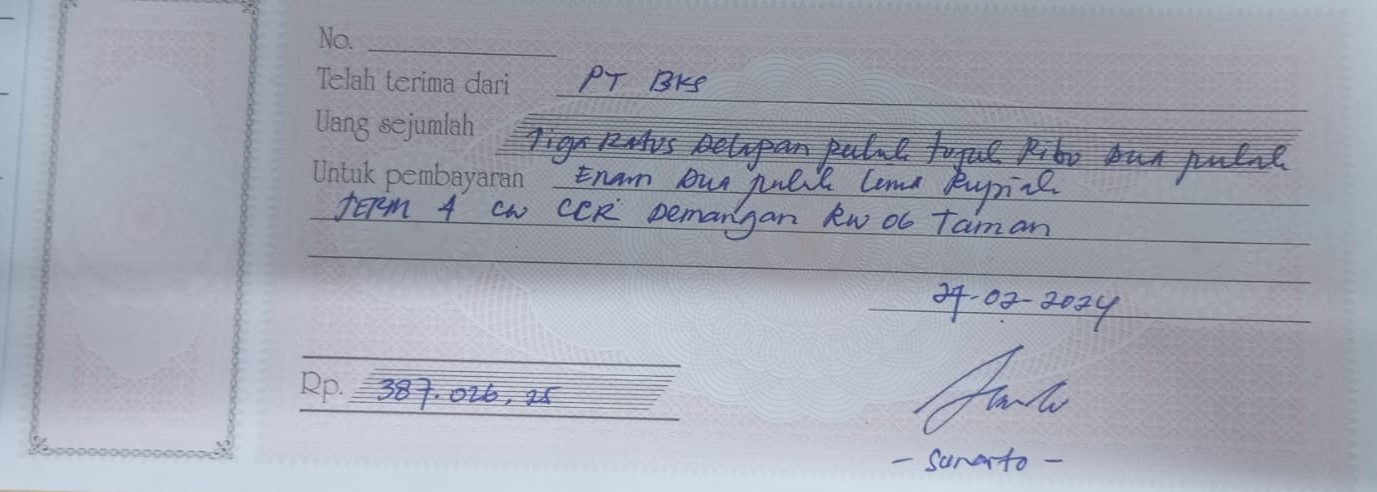 No.
Telah terima dari PT BKS
Uang sejumlah Tiga Ratus Delapan puluh tujuh Ribu Dua puluh
Untuk pembayaran Enam Dua puluh Lima Rupiah
TERM 4 CW CCR Demangan RW 06 Taman
27-02-2024
Rp. 387.026,25
- Sunarto -